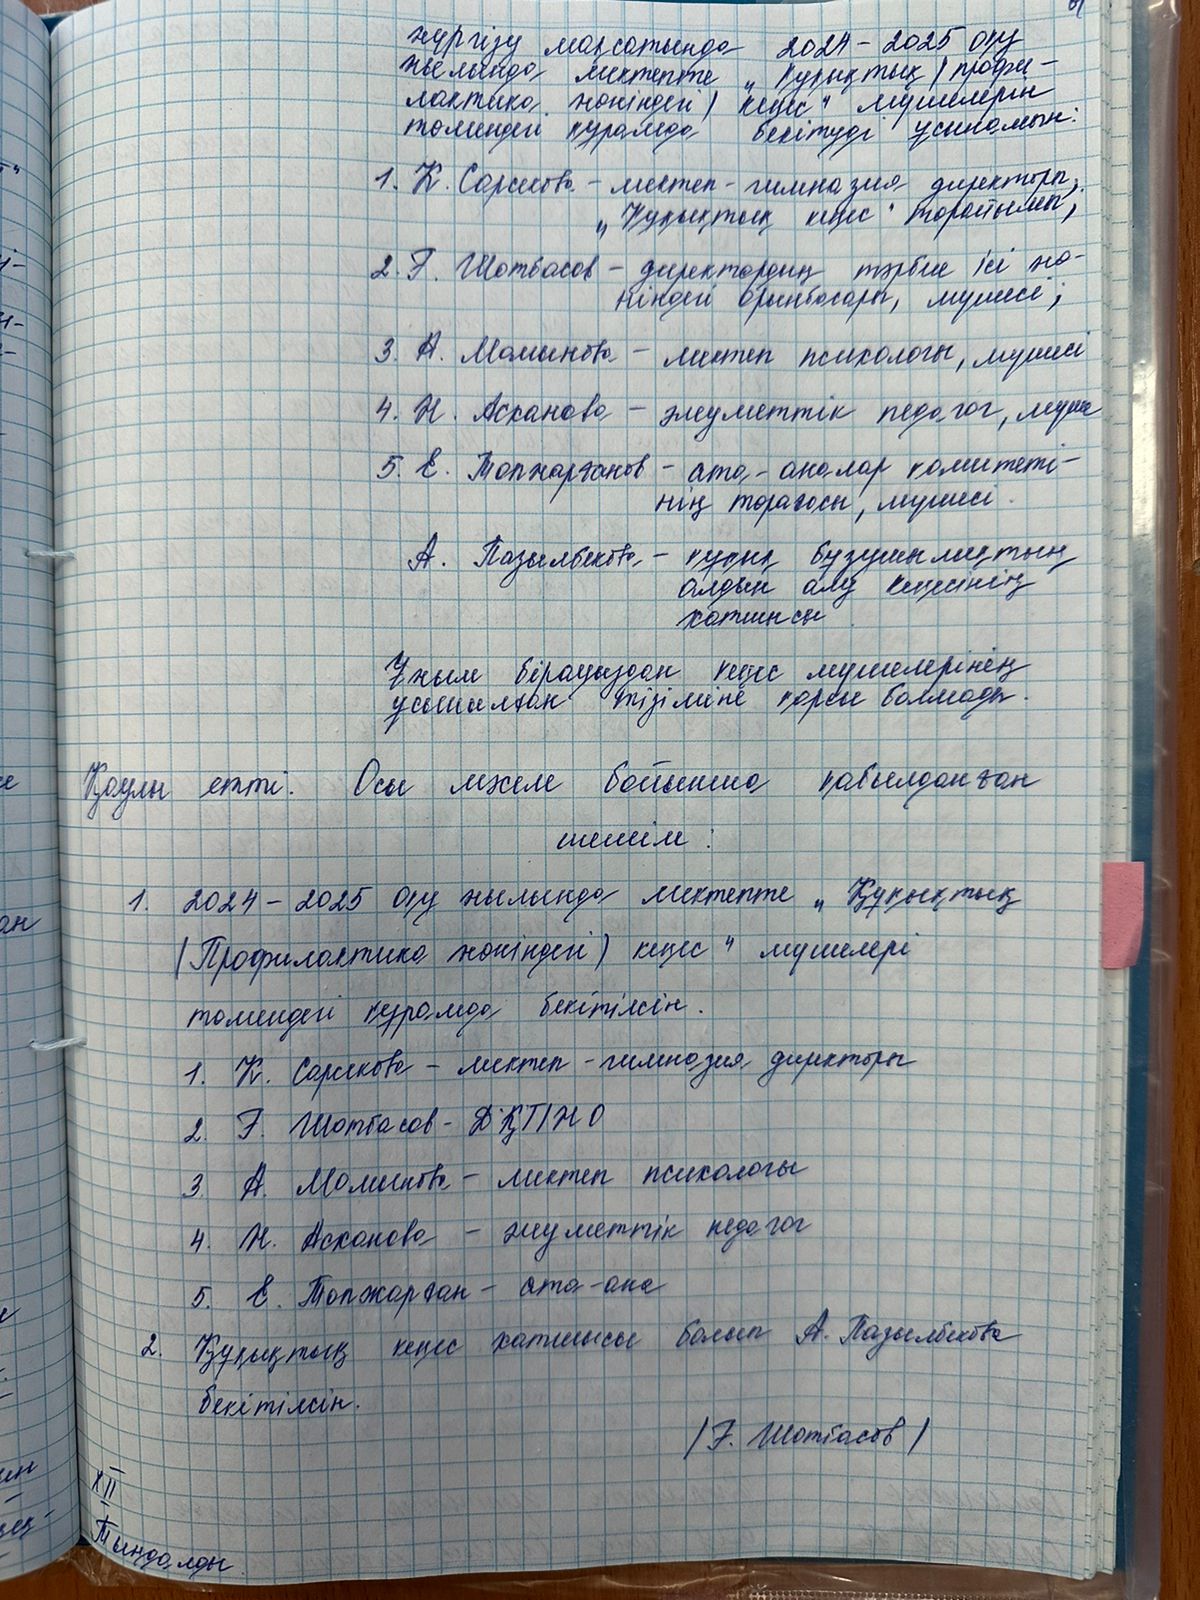 жүргізу мақсатында 2024-2025 оқу
жылында мектепте „Құқықтық (профи-
лактика жөніндегі) кеңес“ мүшелерін
төмендегі құрамда бекітуді ұсынамын:
1. К. Сарсекова - мектеп-гимназия директоры,
„Құқықтық кеңес“ төрайымы;
2. Ғ. Шотбасов - директордың тәрбие ісі жө-
ніндегі орынбасары, мүшесі;
3. А. Моминова - мектеп психологы, мүшесі
4. Н. Асханова - әлеуметтік педагог, мүше
5. Е. Топжарғанов - ата-аналар комитеті-
нің төрағасы, мүшесі.
А. Пазылбекова - құқық бұзушылықтың
алдын алу кеңесінің
хатшысы.
Ұжым бірауыздан кеңес мүшелерінің
ұсынылған тізіміне қарсы болмады.
Қаулы етті: Осы мәселе бойынша қабылданған
шешім:
1. 2024-2025 оқу жылында мектепте „Құқықтық
(Профилактика жөніндегі) кеңес“ мүшелері
төмендегі құрамда бекітілсін.
1. К. Сарсекова - мектеп-гимназия директоры
2. Ғ. Шотбасов - ДҚТІЖО
3 А. Моминова - мектеп психологы
4. Н. Асханова - әлеуметтік педагог
5. Е. Топжарған - ата-ана
2. Құқықтық кеңес хатшысы болып А. Пазылбекова
бекітілсін.
/Ғ. Шотбасов/
XII
Тыңдалды